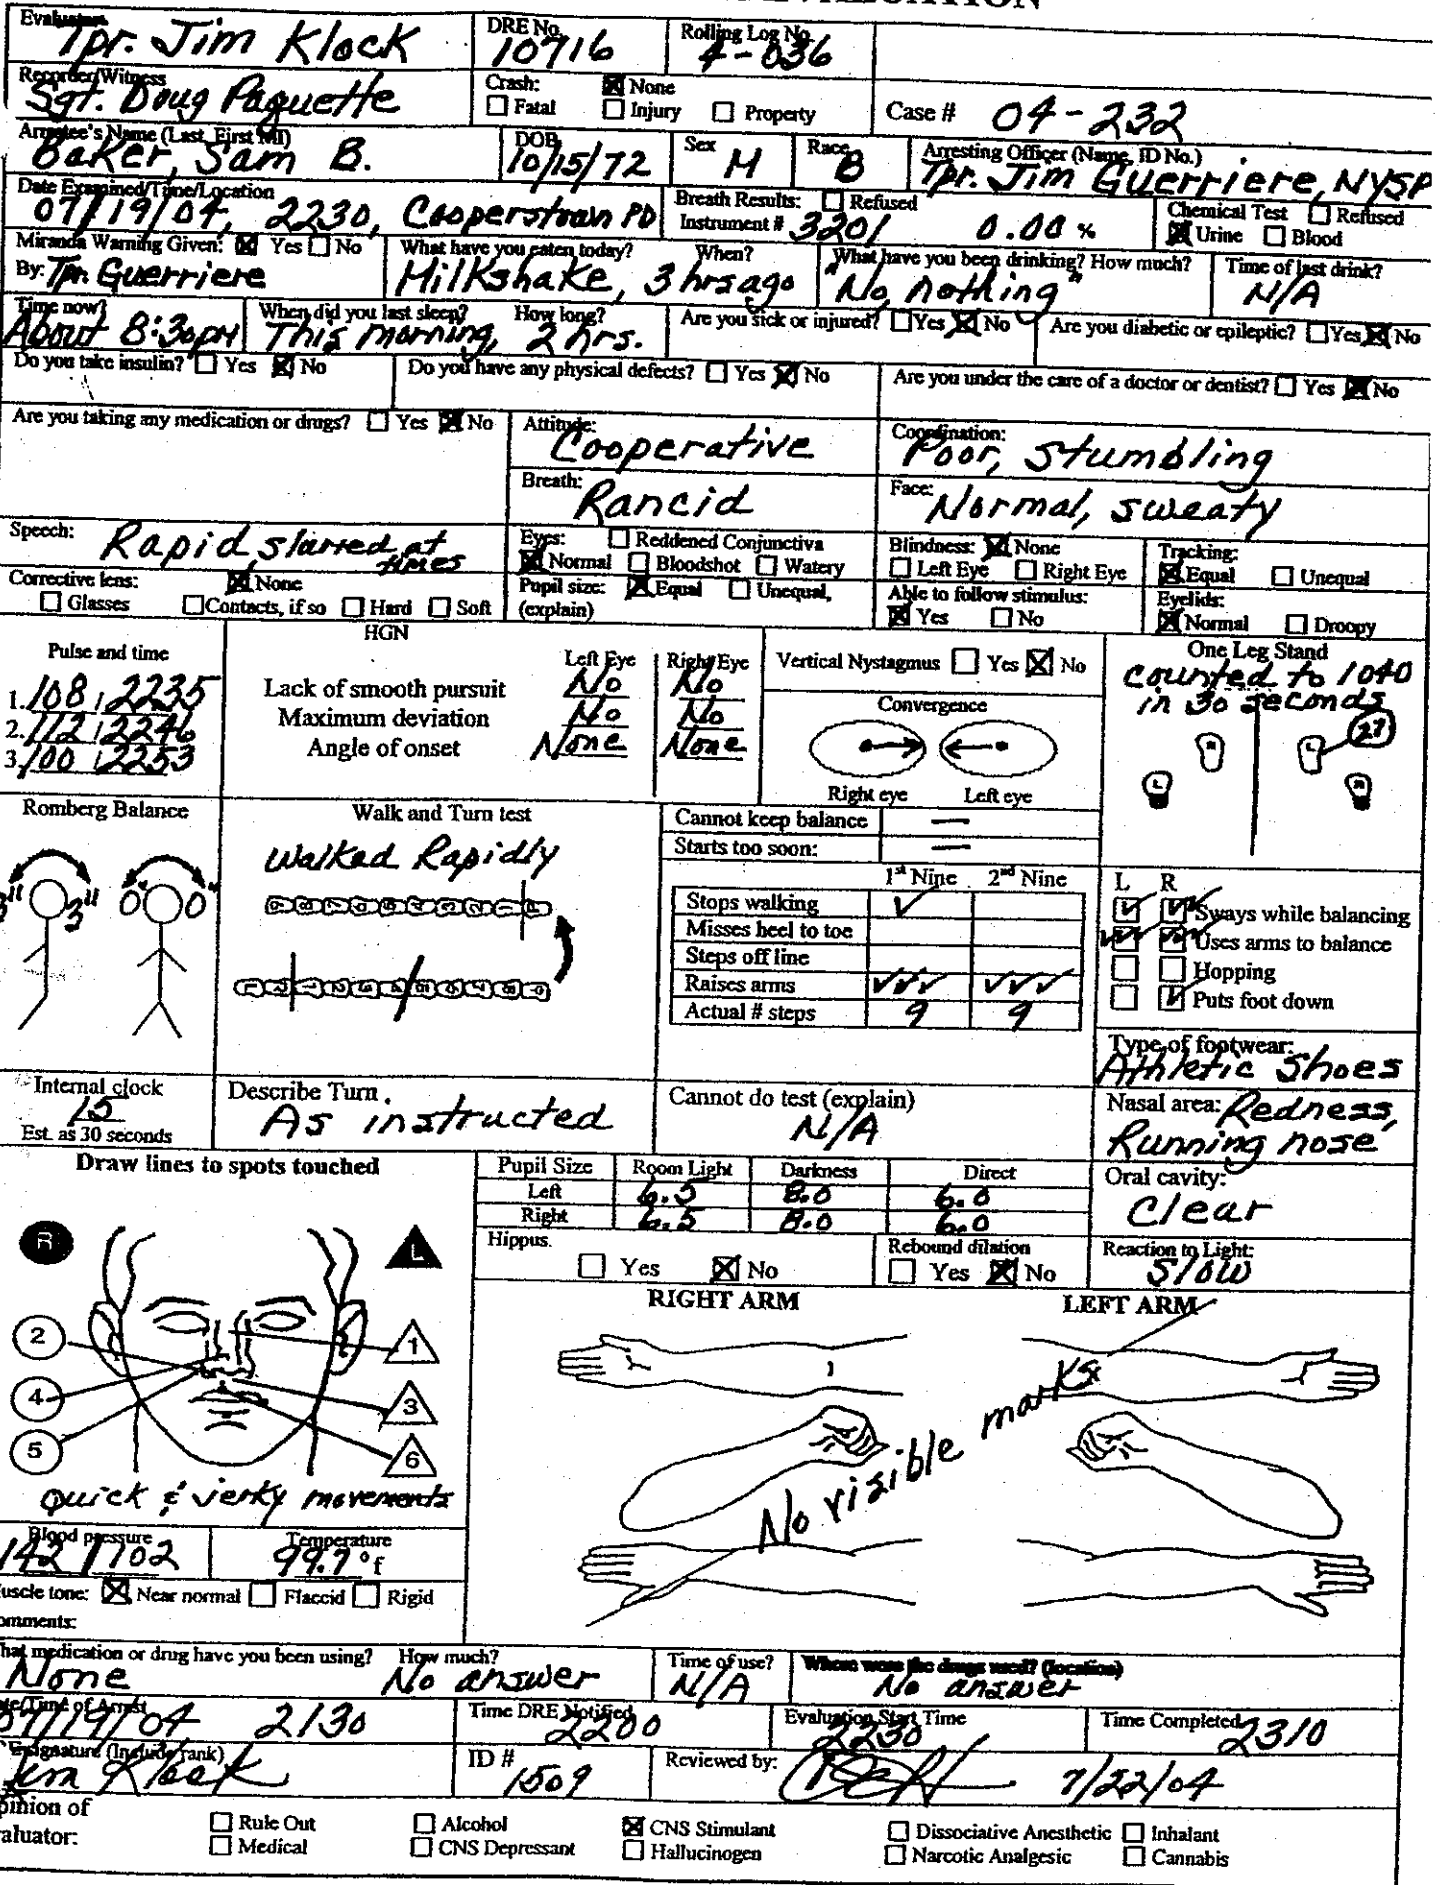 EVALUATION
Evaluator Tpr. Jim Klock DRE No. 10716 Rolling Log No. 4-036
Recorder/Witness Sgt. Doug Paquette Crash: ☒ None ☐ Fatal ☐ Injury ☐ Property Case # 04-232
Arrestee's Name (Last, First MI) Baker, Sam B. DOB 10/15/72 Sex M Race B Arresting Officer (Name, ID No.) Tpr. Jim Guerriere, NYSP
Date Examined/Time/Location 07/19/04, 2230, Cooperstown PD Breath Results: ☐ Refused Instrument # 3201 0.00 % Chemical Test ☐ Refused ☒ Urine ☐ Blood
Miranda Warning Given: ☒ Yes ☐ No By: Tpr. Guerriere What have you eaten today? When? Milkshake, 3 hrs ago What have you been drinking? How much? "No, nothing" Time of last drink? N/A
Time now? About 8:30pm When did you last sleep? How long? This morning, 2 hrs. Are you sick or injured? ☐ Yes ☒ No Are you diabetic or epileptic? ☐ Yes ☒ No
Do you take insulin? ☐ Yes ☒ No Do you have any physical defects? ☐ Yes ☒ No Are you under the care of a doctor or dentist? ☐ Yes ☒ No
Are you taking any medication or drugs? ☐ Yes ☒ No Attitude: Cooperative Coordination: Poor, stumbling
Breath: Rancid Face: Normal, sweaty
Speech: Rapid, slurred at times Eyes: ☐ Reddened Conjunctiva ☒ Normal ☐ Bloodshot ☐ Watery Blindness: ☒ None ☐ Left Eye ☐ Right Eye Tracking: ☒ Equal ☐ Unequal
Corrective lens: ☒ None ☐ Glasses ☐ Contacts, if so ☐ Hard ☐ Soft Pupil size: ☒ Equal ☐ Unequal, (explain) Able to follow stimulus: ☒ Yes ☐ No Eyelids: ☒ Normal ☐ Droopy
Pulse and time
1. 108 / 2235
2. 112 / 2246
3. 100 / 2253
HGN Left Eye Right Eye
Lack of smooth pursuit No No
Maximum deviation No No
Angle of onset None None
Vertical Nystagmus ☐ Yes ☒ No
Convergence
Right eye Left eye
One Leg Stand
counted to 1040
in 30 seconds
R L 27
L R
Romberg Balance
3" 3" 0" 0"
Walk and Turn test
Walked Rapidly
Cannot keep balance —
Starts too soon: —
1st Nine 2nd Nine
Stops walking ✓
Misses heel to toe
Steps off line
Raises arms ✓✓✓ ✓✓✓
Actual # steps 9 9
L R
Sways while balancing
Uses arms to balance
Hopping
Puts foot down
Type of footwear: Athletic Shoes
Internal clock 15 Est. as 30 seconds
Describe Turn. As instructed
Cannot do test (explain) N/A
Nasal area: Redness, Running nose
Draw lines to spots touched
R L
2 1
4 3
5 6
Quick & jerky movements
Pupil Size Room Light Darkness Direct
Left 6.5 8.0 6.0
Right 6.5 8.0 6.0
Oral cavity: Clear
Hippus. ☐ Yes ☒ No Rebound dilation ☐ Yes ☒ No Reaction to Light: Slow
RIGHT ARM LEFT ARM
No visible marks
Blood pressure 142 / 102 Temperature 99.7 °f
uscle tone: ☒ Near normal ☐ Flaccid ☐ Rigid
omments:
hat medication or drug have you been using? None How much? No answer Time of use? N/A Where were the drugs used? (location) No answer
ate/Time of Arrest 07/19/04 2130 Time DRE Notified 2200 Evaluation Start Time 2230 Time Completed 2310
signature (Include rank) Jim Klock ID # 1509 Reviewed by: 7/22/04
pinion of valuator: ☐ Rule Out ☐ Alcohol ☒ CNS Stimulant ☐ Dissociative Anesthetic ☐ Inhalant
☐ Medical ☐ CNS Depressant ☐ Hallucinogen ☐ Narcotic Analgesic ☐ Cannabis